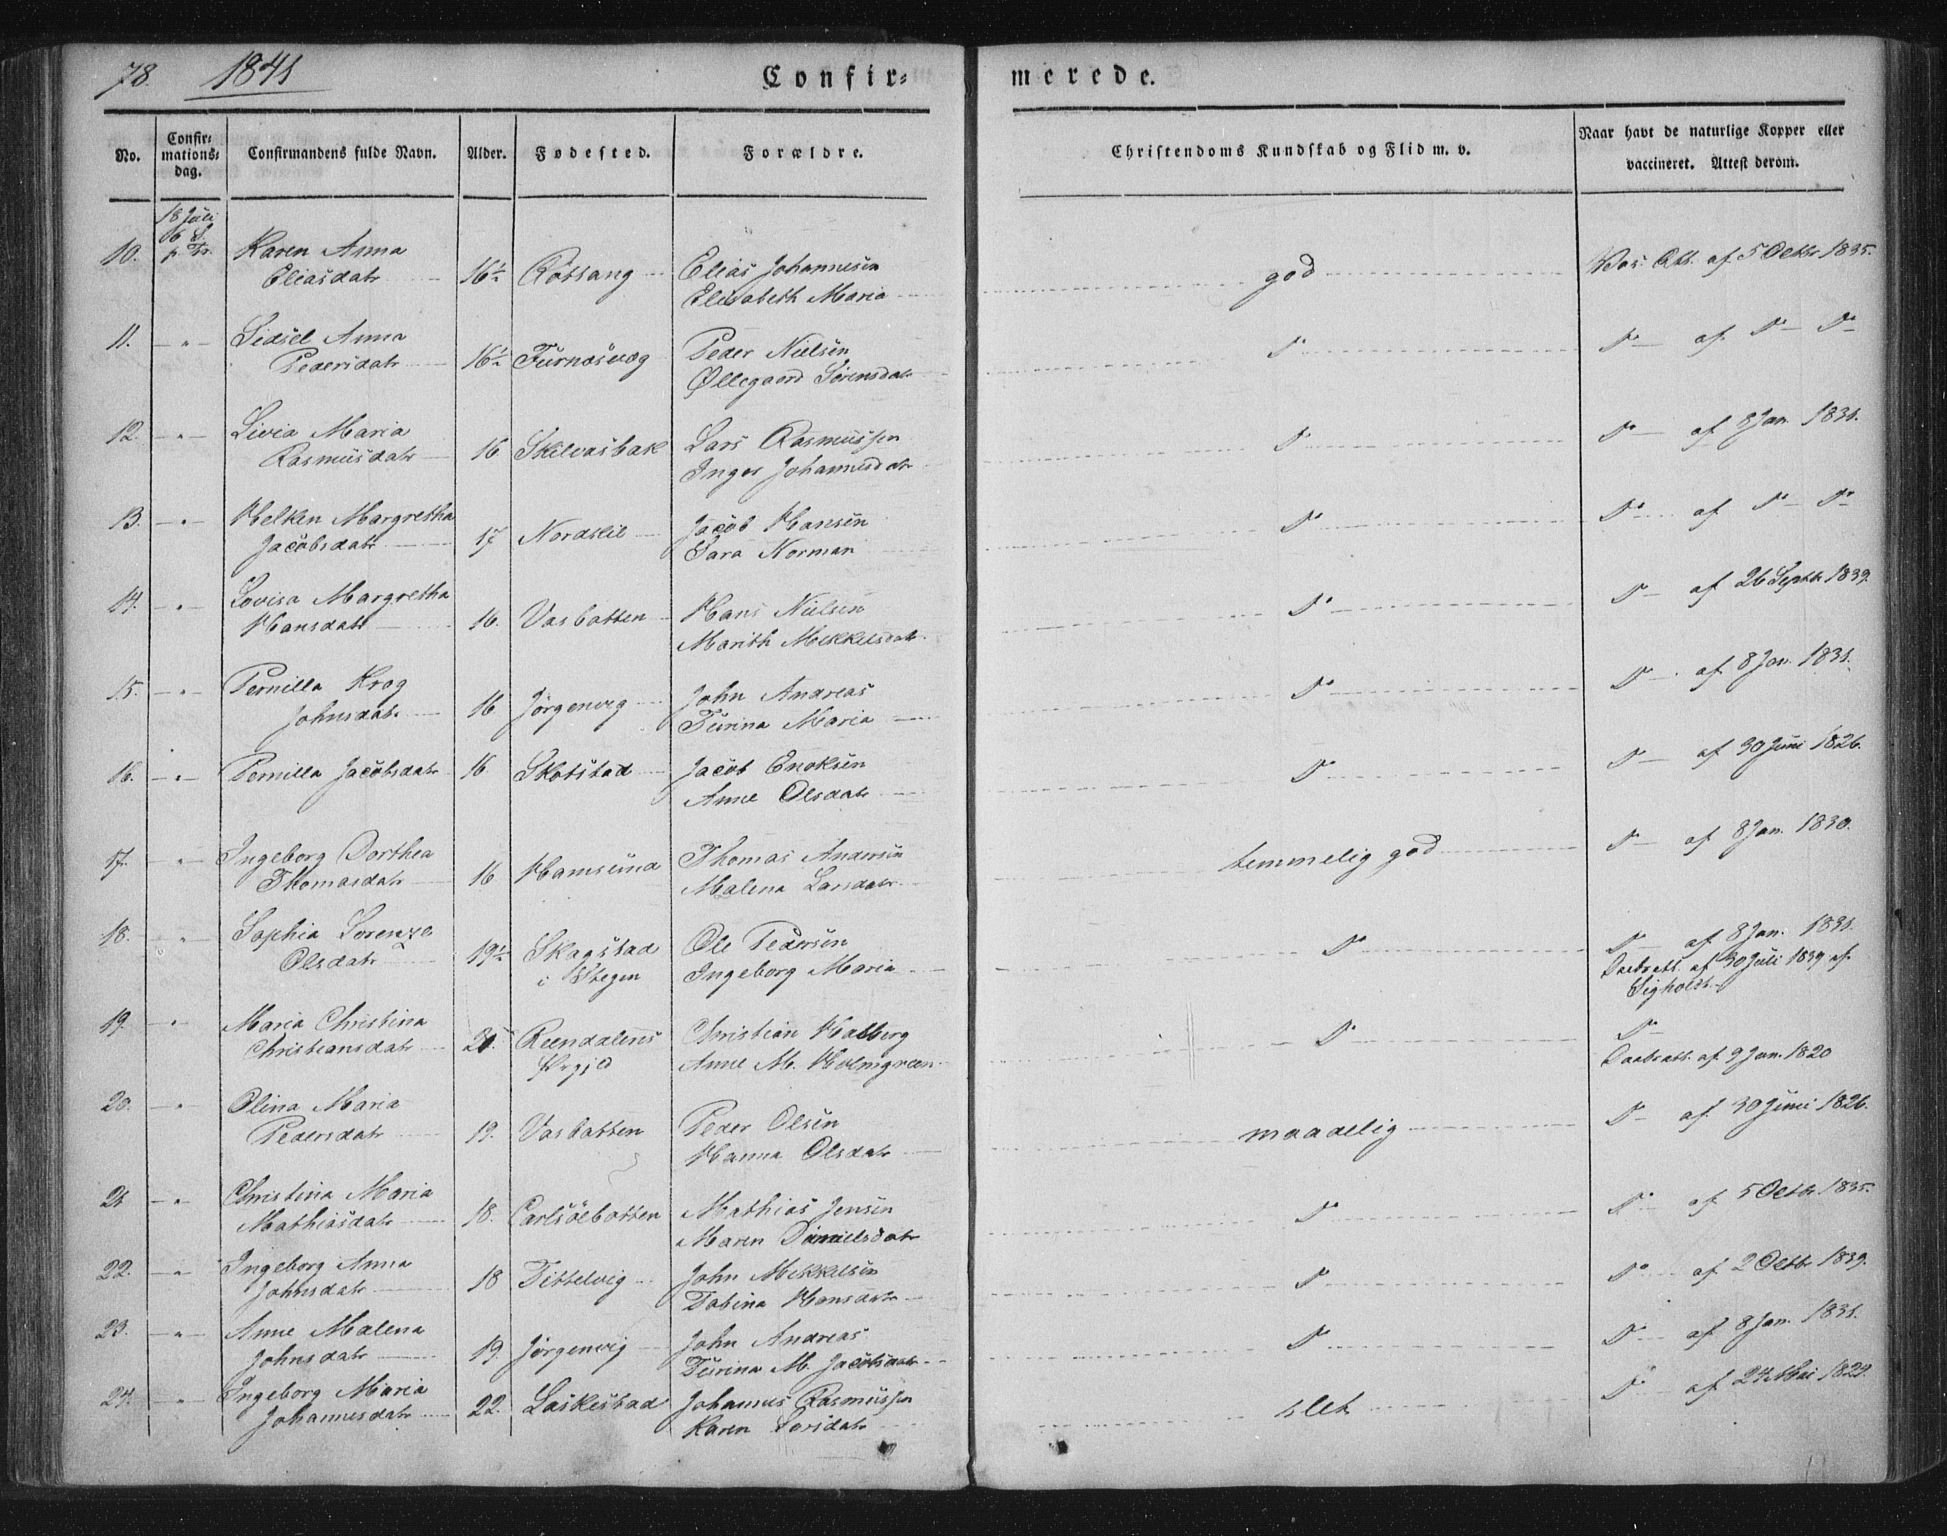 78. 1841
Confir= merede.
No.
Confir=
mations=
dag.
Confirmandens fulde Navn.
Alder.
Fødested.
Forældre.
Christendoms Kundskab og Flid m. v.
Naar havt de naturlige Kopper eller
vaccineret. Attest derom.
18 Juli
6 S.
p. Tr.
10. Karen Anna 16½ Røtsang Elias Johannesen god Vac. Att. af 5 Octbr 1835.
Eliasdatr Elisabeth Maria
11. " Sidsel Anna 16½ Furnæsvæg Peder Nielsen Do Do af Do Do
Pedersdatr Øllegaard Sørensdatr
12. " Livia Maria 16 Skilvasbak Lars Rasmussen Do Do af 8 Jan. 1831.
Rasmusdatr Inger Johannesdatr
13. " Helken Margretha 17 Nordskil Jacob Hansen Do Do af Do Do
Jacobsdatr Sara Norman
14. " Lovisa Margretha 16. Vasbotten Hans Nielsen Do Do af 26 Septbr 1839.
Hansdatr Marith Mekkelsdatr
15. " Pernilla Krog 16 Jørgenvig John Andreas Do Do af 8 Jan. 1831.
Johnsdatr Turina Maria
16. " Pernilla Jacobsdatr 16 Skotstad Jacob Enoksen Do Do af 30 Juni 1826.
Anne Olsdatr
17. " Ingeborg Dorthea 16 Hamsund Thomas Andersen temmelig god Do af 8 Jan. 1830.
Thomasdatr Malena Larsdatr
18. " Sophia Lorenze 19½ Skagstad Ole Pedersen Do Do af 8 Jan. 1831.
Olsdatr i Stegen Ingeborg Maria Daabsatt. af 30 Juli 1839 af
Sigholt
19. " Maria Christina Reendalens Christian Halberg Do Do
Christiansdatr Prgjld Anne M. Holmgreen Daabsatt. af 9 Jan. 1820
20. " Olina Maria 19. Vasbotten Peder Olsen maadelig Do af 30 Juni 1826.
Pedersdatr Hanna Olsdatr
21 " Christina Maria 18. Carlsöebotten Mathias Jensen Do Do af 5 Octbr 1835.
Mathiasdatr Maren Danielsdatr
22. " Ingeborg Anna 18 Tittelvig John Mekkelsen Do Do af 2 Octbr 1839.
Johnsdatr Tobina Hansdatr
23. " Anne Malena 19. Jørgenvig John Andreas Do Do af 8 Jan. 1831.
Johnsdatr Turina M. Jacobsdatr
24. " Ingeborg Maria 22. Laskestad Johannes Rasmussen slet Do af 24 Mai 1824.
Johannesdatr Karen Larsdatr